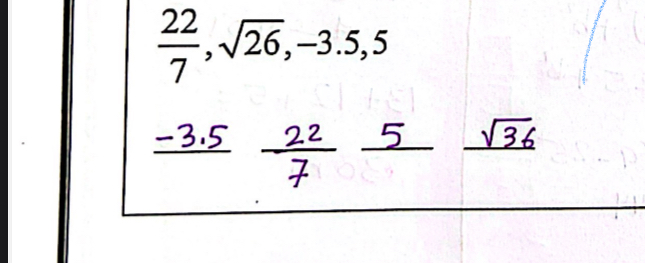 22/7, √26, -3.5, 5
-3.5 22/7 5 √36